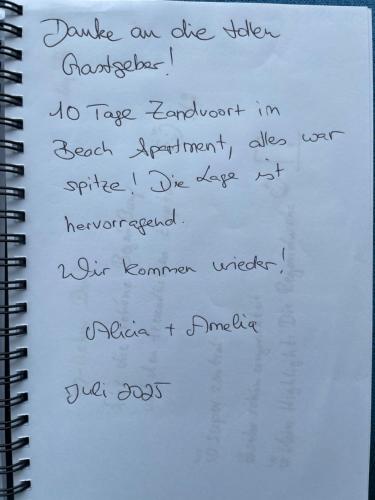 Danke an die tollen
Gastgeber!
10 Tage Zandvoort im
Beach Apartment, alles war
spitze! Die Lage ist
hervorragend.
Wir kommen wieder!
Alicia + Amelia
Juli 2025